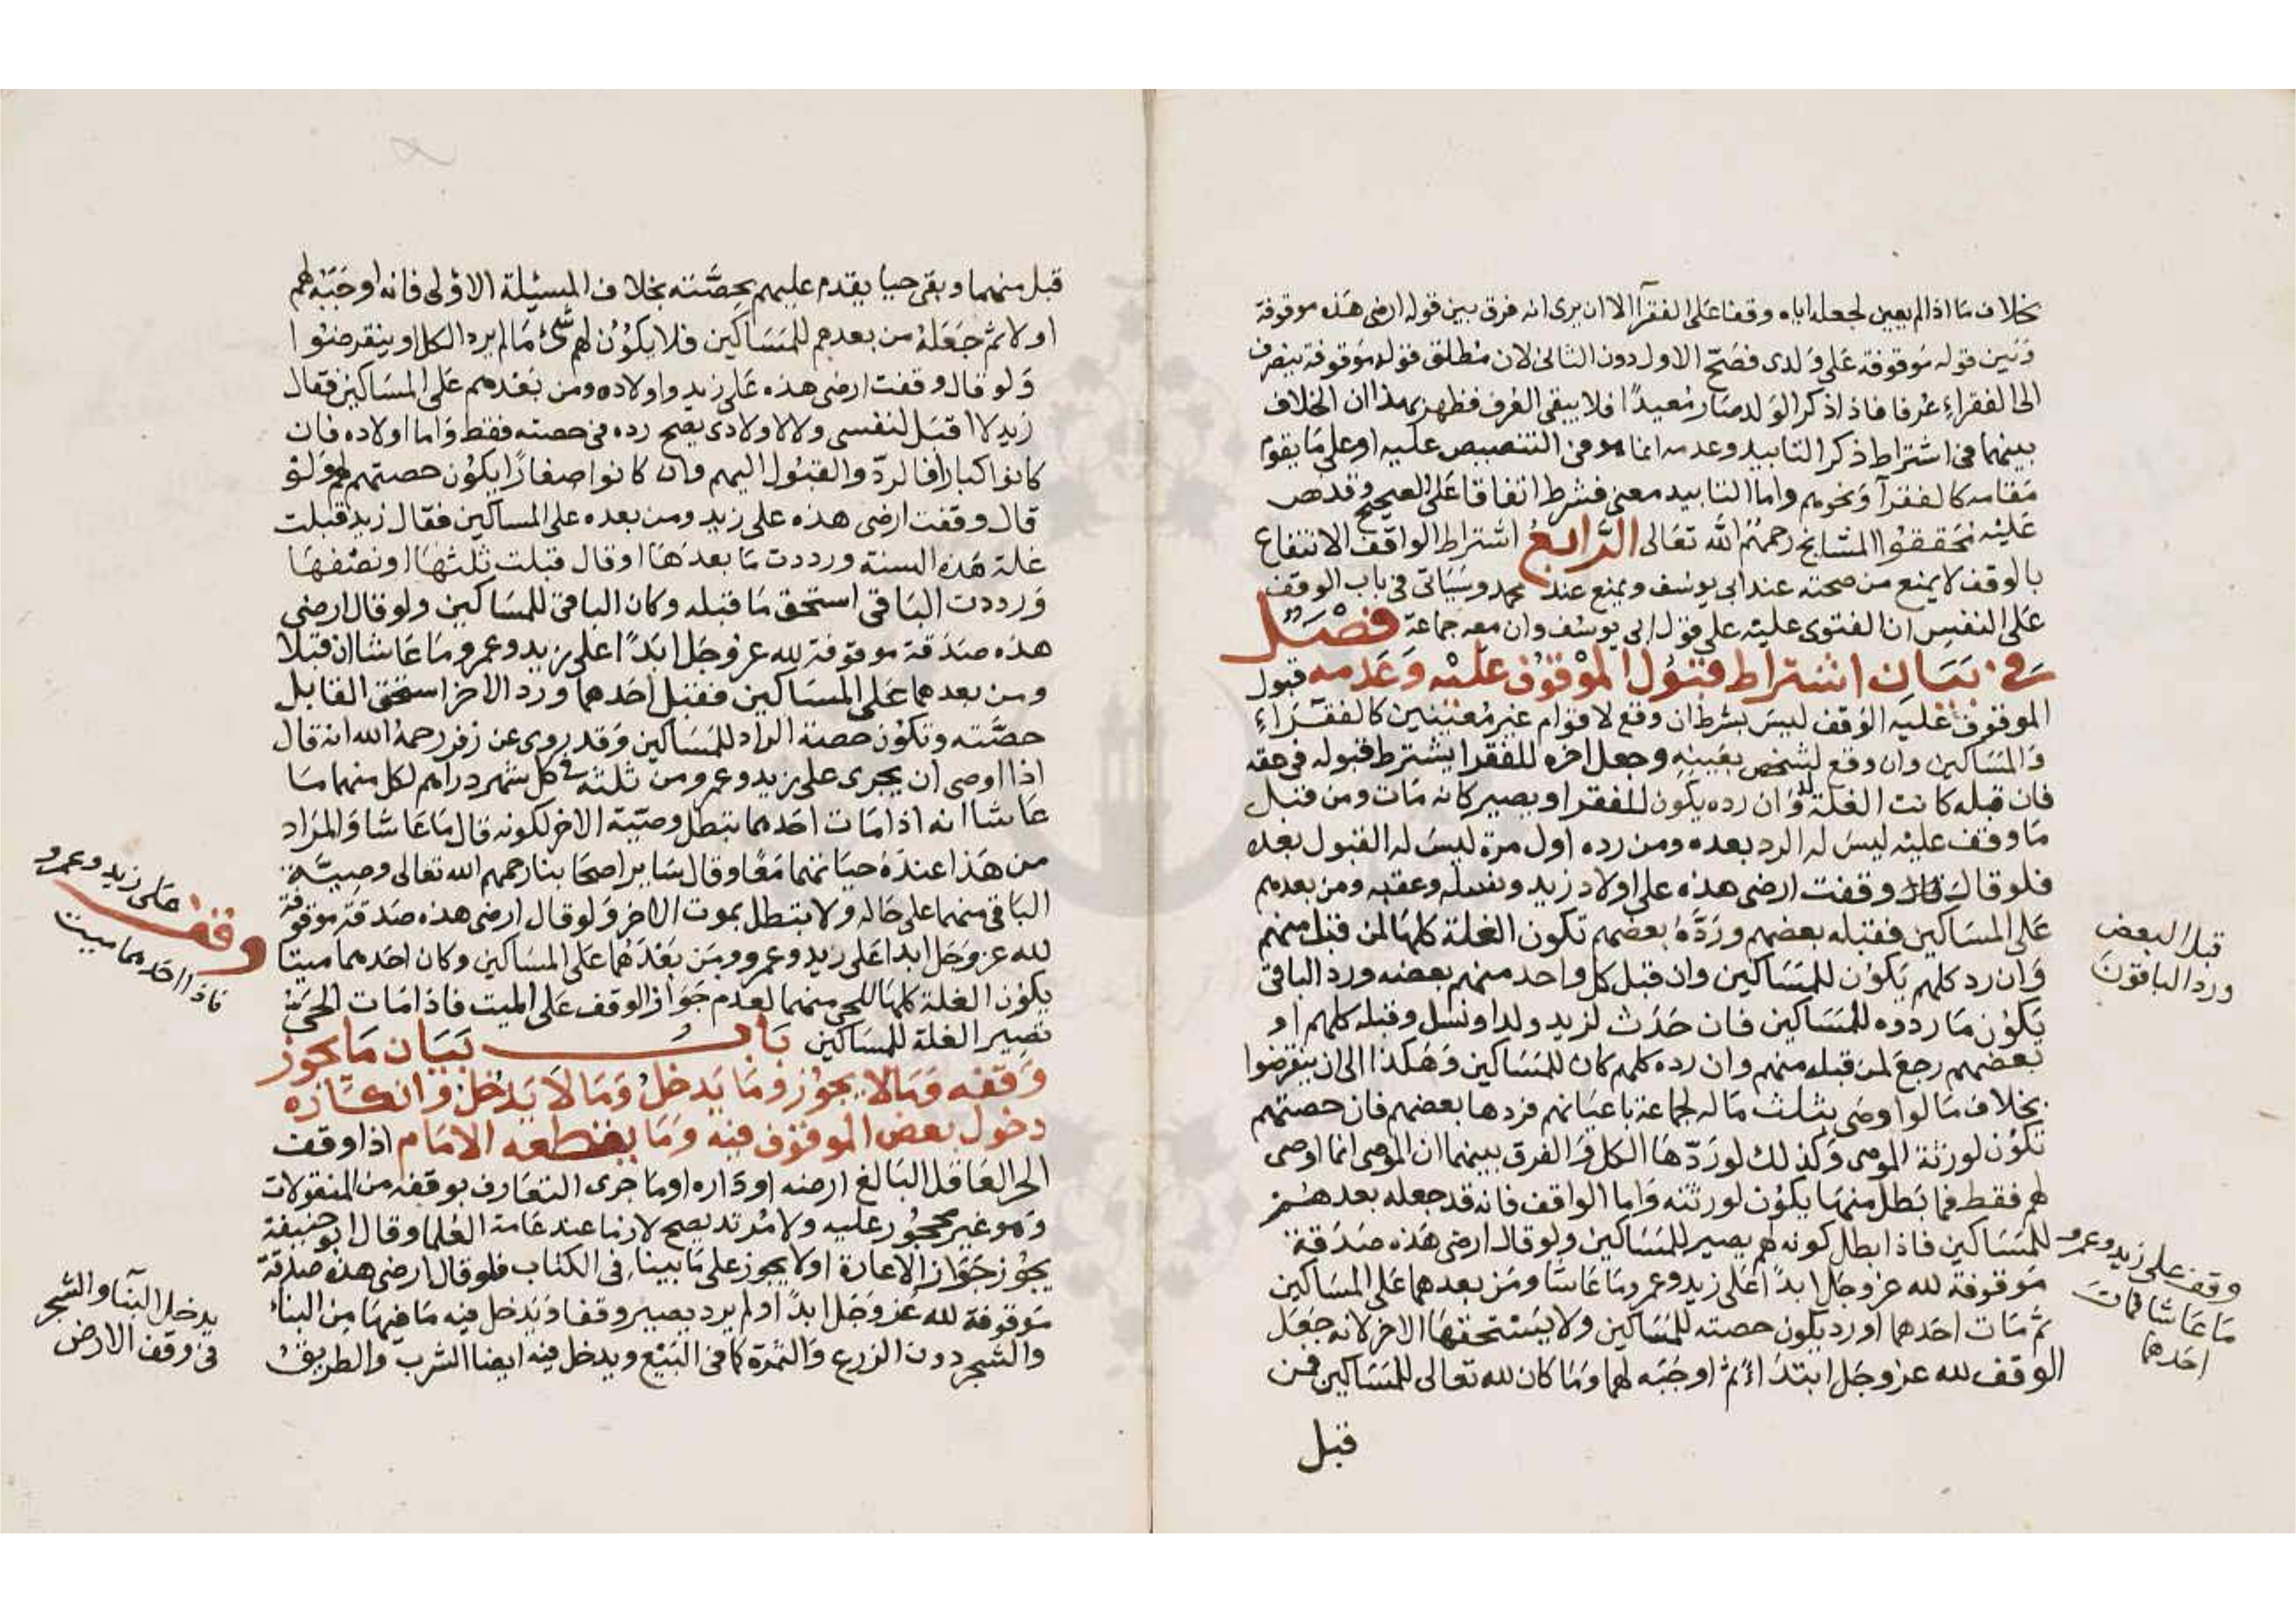 بخلاف ما اذا لم يعين لجعله اياه وقفا على الفقرآ الا ان يرى انه فرق بين قوله ارضى هذه موقوفة
وبين قوله موقوفة على ولدى فصح الاول دون الثانى لان مطلق قوله موقوفة ينصرف
الى الفقراء عرفا فاذا ذكر الولد صار مقيدا فلا يبقى العرف فظهر بهذا ان الخلاف
بينهما فى اشتراط ذكر التابيد وعدمه انما هو فى التنصيص عليه او على ما يقوم
مقامه كالفقرآ ونحوهم واما التابيد معنى فشرط اتفاقا على الصحيح وقد نص
عليه محققوا المشايخ رحمهم الله تعالى الرابع اشتراط الواقف الانتفاع
بالوقف لا يمنع من صحته عند ابى يوسف ويمنع عند محمد وسيأتى فى باب الوقف
على النفس ان الفتوى عليه على قول ابى يوسف وان معه جماعة فصل
فى بيان اشتراط قبول الموقوف عليه وعدمه قبول
الموقوف عليه الوقف ليس بشرط ان وقع لاقوام غير معينين كالفقراء
والمساكين وان وقع لشخص بعينه وجعل اخره للفقرا يشترط قبوله فى حقه
فان قبله كانت الغلة له وان رده يكون للفقرا ويصير كانه مات ومن قبل
ما وقف عليه ليس له الرد بعده ومن رده اول مرة ليس له القبول بعده
فلو قال وقفت ارضى هذه على اولاد زيد ونسله وعقبه ومن بعدهم
على المساكين فقبله بعضهم ورده بعضهم تكون الغلة كلها لمن قبل منهم
وان رد كلهم يكون للمساكين وان قبل كل واحد منهم بعضه ورد الباقى
يكون ما ردوه للمساكين فان حدث لزيد ولد او نسل وقبله كلهم او
بعضهم رجع لمن قبله منهم وان رده كلهم كان للمساكين وهكذا الى ان ينقرضوا
بخلاف ما لو اوصى بثلث ماله لجماعة باعيانهم فردها بعضهم فان حصتهم
تكون لورثة الموصى وكذلك لو ردها الكل والفرق بينهما ان الموصى انما اوصى
لهم فقط فما بطل منها يكون لورثته واما الواقف فانه قد جعله بعدهم
للمساكين فاذا بطل كونه لهم يصير للمساكين ولو قال ارضى هذه صدقة
موقوفة لله عز وجل ابدا على زيد وعمرو ما عاشا ومن بعدهما على المساكين
ثم مات احدهما او رد يكون حصته للمساكين ولا يستحقها الاخر لانه جعل
الوقف لله عز وجل ابتداء ثم اوجبه لهما وما كان لله تعالى للمساكين فمن
قبل
قبل البعض
ورد الباقون
وقف على زيد وعمرو
ما عاشا فمات
احدهما
قبل منهما وبقى حيا يقدم عليهم بحصته بخلاف المسئلة الاولى فانه اوجبه لهم
اولا ثم جعله من بعدهم للمساكين فلا يكون لهم شئ ما لم يرد الكل او ينقرضوا
ولو قال وقفت ارضى هذه على زيد واولاده ومن بعدهم على المساكين فقال
زيد لا اقبل لنفسى ولا لاولادى يصح رده فى حصته فقط واما اولاده فان
كانوا كبارا فالرد والقبول اليهم وان كانوا صغارا يكون حصتهم لهم ولو
قال وقفت ارضى هذه على زيد ومن بعده على المساكين فقال زيد قبلت
غلة هذه السنة ورددت ما بعدها او قال قبلت ثلثها او نصفها
ورددت الباقى استحق ما قبله وكان الباقى للمساكين ولو قال ارضى
هذه صدقة موقوفة لله عز وجل ابدا على زيد وعمرو ما عاشا ان قبلا
ومن بعدهما على المساكين فقبل احدهما ورد الاخر استحق القابل
حصته وتكون حصة الراد للمساكين وقد روى عن زفر رحمه الله انه قال
اذا اوصى ان يجرى على زيد وعمرو من ثلثه فى كل شهر دراهم لكل منهما ما
عاشا انه اذا مات احدهما تبطل وصية الاخر لكونه قال ما عاشا والمراد
من هذا عنده حياتهما معا وقال سائر اصحابنا رحمهم الله تعالى وصية
الباقى منهما على حاله ولا تبطل بموت الاخر ولو قال ارضى هذه صدقة موقوفة
لله عز وجل ابدا على زيد وعمرو ومن بعدهما على المساكين وكان احدهما ميتا
يكون الغلة كلها للحى منهما لعدم جواز الوقف على الميت فاذا مات الحى
تصير الغلة للمساكين باب بيان ما يجوز
وقفه وما لا يجوز وما يدخل وما لا يدخل وانكاره
دخول بعض الموقوف فيه وما يقطعه الامام اذا وقف
الحر العاقل البالغ ارضه او داره او ما جرى التعارف بوقفه من المنقولات
وهو غير محجور عليه ولا مرتد يصح لازما عند عامة العلما وقال ابو حنيفة
يجوز جواز الاعارة او لا يجوز على ما بينا فى الكتاب فلو قال ارضى هذه صدقة
موقوفة لله عز وجل ابدا ولم يرد يصير وقفا ويدخل فيه ما فيها من البناء
والشجر دون الزرع والثمرة كما فى البيع ويدخل فيه ايضا الشرب والطريق
وقف على زيد وعمرو
فاذا احدهما ميت
يدخل البنآ والشجر
فى وقف الارض